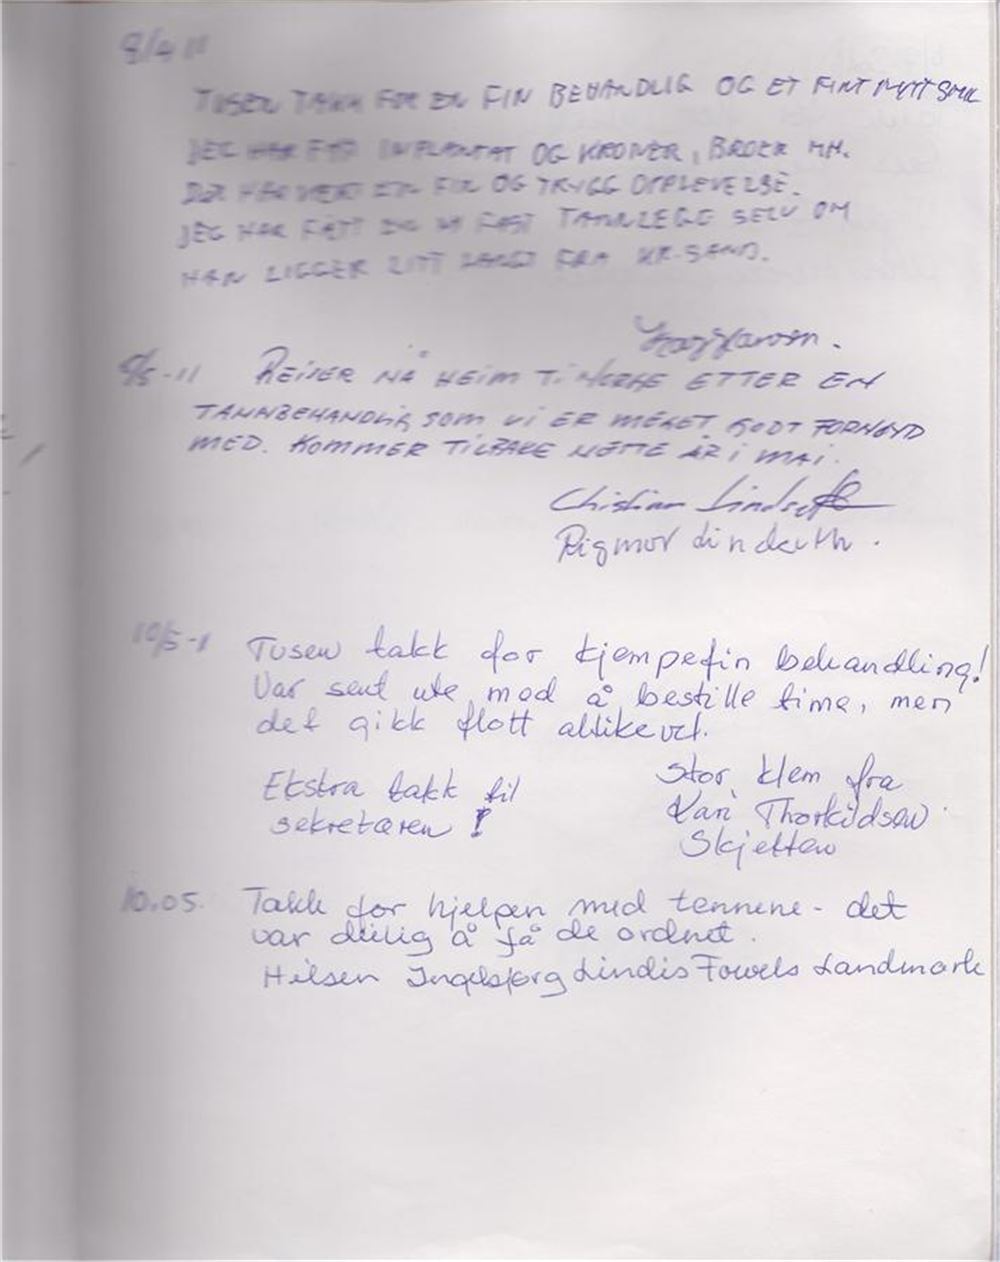 8/4 11
TUSEN TAKK FOR EN FIN BEHANDLIG OG ET FINT NYTT SMIL
JEG HAR FÅTT INPLANTAT OG KRONER, BROER MM.
DET HAR VÆRT EN FIN OG TRYGG OPPLEVELSE.
JEG HAR FÅTT EN NY FAST TANNLEGE SELV OM
HAN LIGGER LITT LANGT FRA KR.SAND.
9/5-11 REISER NÅ HEIM TIL NORGE ETTER EN
TANNBEHANDLIG SOM VI ER MEGET GODT FORNØYD
MED. KOMMER TILBAKE NESTE ÅR I MAI.
Christian
Rigmor
10/5-1 Tusen takk for kjempefin behandling!
Var sent ute med å bestille time, men
det gikk flott allikevel.
Ekstra takk til
sekretæren !
Stor klem fra
Kari Thorkildsen
Skjetten
10.05. Takk for hjelpen med tennene - det
var deilig å få de ordnet.
Hilsen Ingebjørg Lindis Fowels Landmark